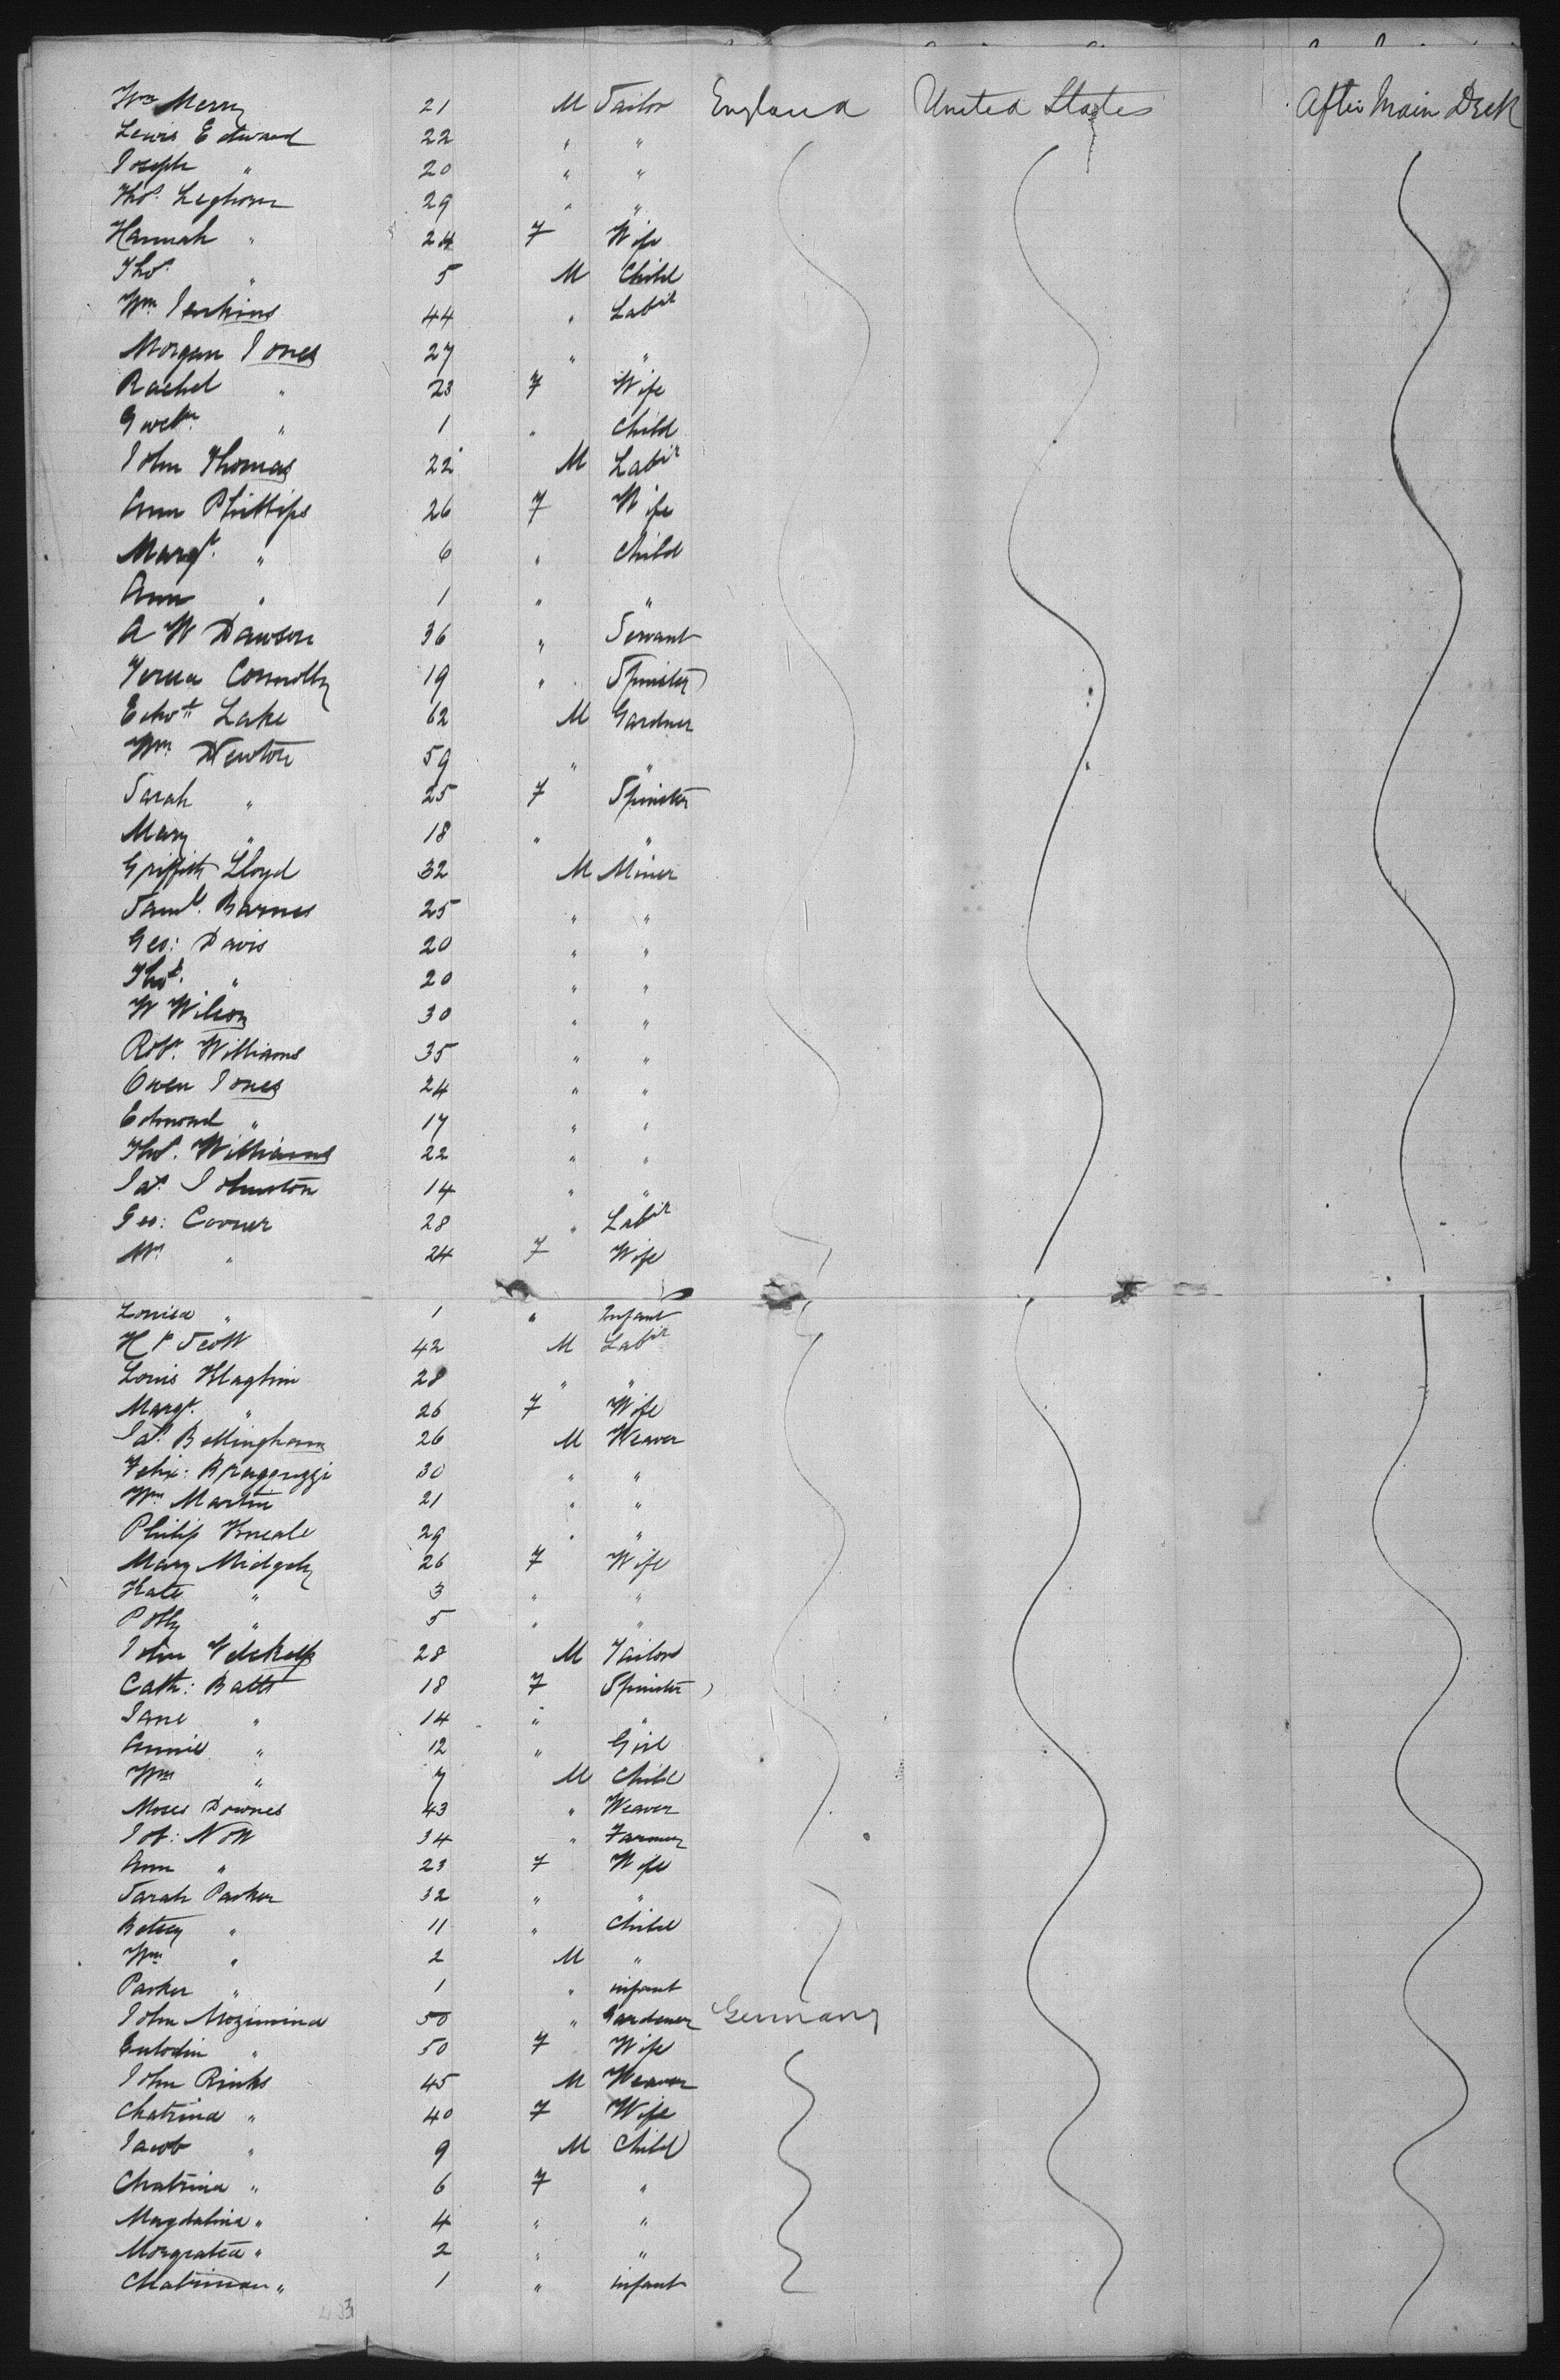 Wm Merry 21 M Tailor England United States After Main Deck
Lewis Edward 22 " "
Joseph " 20 " "
Thos. Leghorn 29 " "
Hannah " 24 F Wife
Thos. " 5 M Child
Wm. Jenkins 44 " Labr
Morgan Jones 27 " "
Rachel " 23 F Wife
" 1 " Child
John Thomas 22 M Labr
Ann Phillips 26 F Wife
Margt. " 6 " Child
Ann " 1 " "
A W Dawson 36 " Servant
Connolly 19 " Spinster
Edwd Lake 62 M Gardner
Wm. Newton 59 " "
Sarah " 25 F Spinster
Mary " 18 " "
Griffith Lloyd 32 M Miner
Saml. Barnes 25 " "
Geo: Davis 20 " "
Thos. " 20 " "
W Wilson 30 " "
Robt. Williams 35 " "
Owen Jones 24 " "
Edmond " 17 " "
Thos. Williams 22 " "
Jas. Johnston 14 " "
Geo: Corner 28 " Labr
Mrs " 24 F Wife
Louisa " 1 " Infant
Hy Scott 42 M Labr
Louis 28 " "
Margt. " 26 F Wife
Jas. Bellingham 26 M Weaver
Felix: 30 " "
Wm Martin 21 " "
Philip Kneale 29 " "
Mary Midgely 26 F Wife
Kate " 3 " "
Polly " 5 " "
John 28 M Tailor
Cath: Batts 18 F Spinster
Jane " 14 " "
Annie " 12 " Girl
Wm " 7 M Child
Moses Downes 43 " Weaver
Job: Nott 34 " Farmer
Ann " 23 F Wife
Sarah Parker 32 " "
Betsey " 11 " Child
Wm " 2 M "
Parker " 1 " infant
John 50 " Gardener Germany
" 50 F Wife
John Rinks 45 M Weaver
Chatrina " 40 F Wife
Jacob " 9 M Child
Chatrina " 6 F "
Magdalina " 4 " "
Morgratea " 2 " "
" 1 " infant